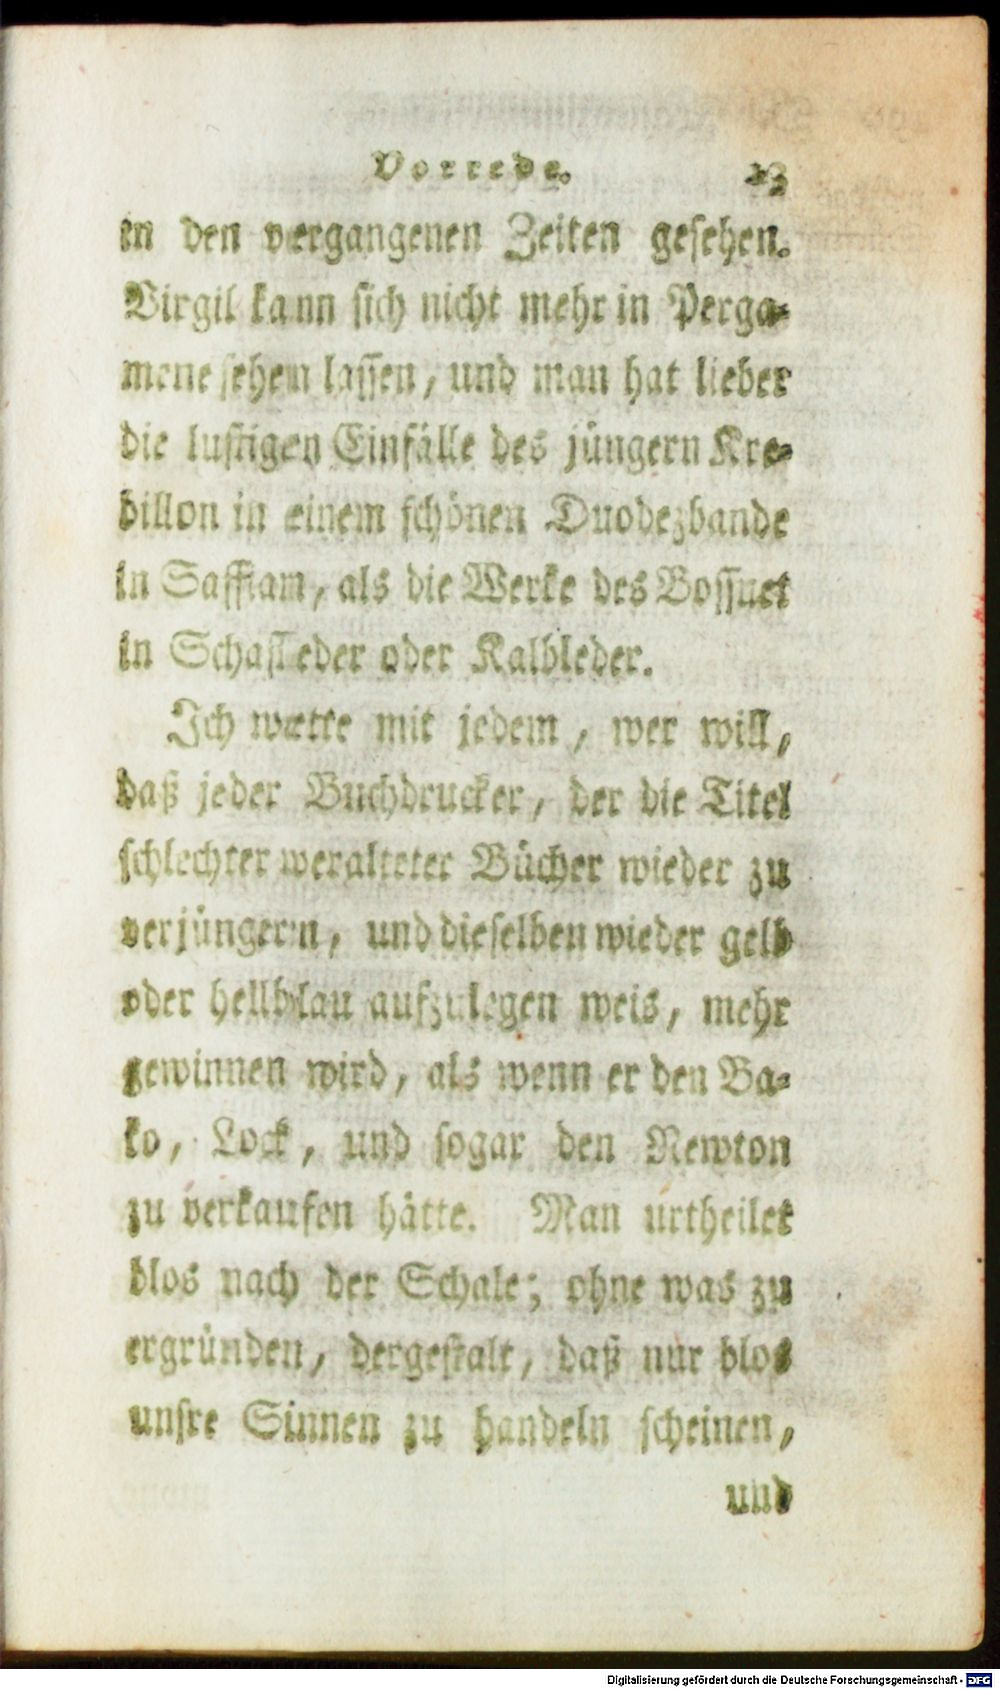 Vorrede. 13
in den vergangenen Zeiten gesehen.
Virgil kann sich nicht mehr in Perga-
mene sehen lassen, und man hat lieber
die lustigen Einfälle des jüngern Kre-
billon in einem schönen Duodezbande
in Saffiam, als die Werke des Bossuet
in Schafleder oder Kalbleder.
Ich wette mit jedem, wer will,
daß jeder Buchdrucker, der die Titel
schlechter veralteter Bücher wieder zu
verjüngern, und dieselben wieder gelb
oder hellblau aufzulegen weis, mehr
gewinnen wird, als wenn er den Ba-
ko, Lock, und sogar den Newton
zu verkaufen hätte. Man urtheilet
blos nach der Schale; ohne was zu
ergründen, dergestalt, daß nur blos
unsre Sinnen zu handeln scheinen,
und
Digitalisierung gefördert durch die Deutsche Forschungsgemeinschaft - DFG